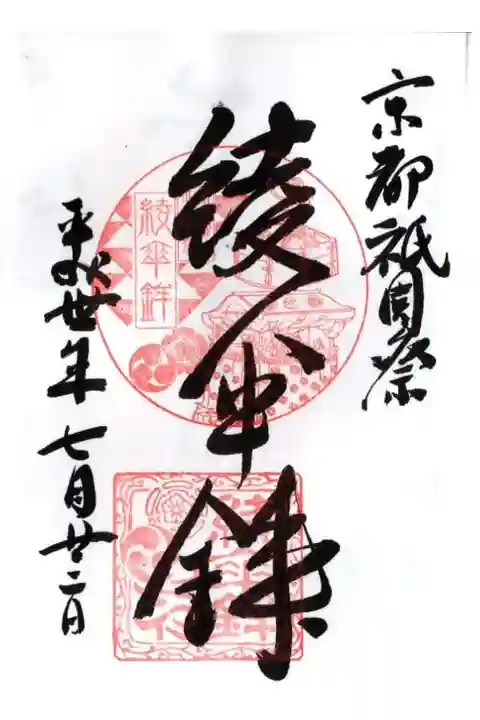 京都祇園祭
綾傘鉾
平成卅年七月廿二日
綾傘鉾